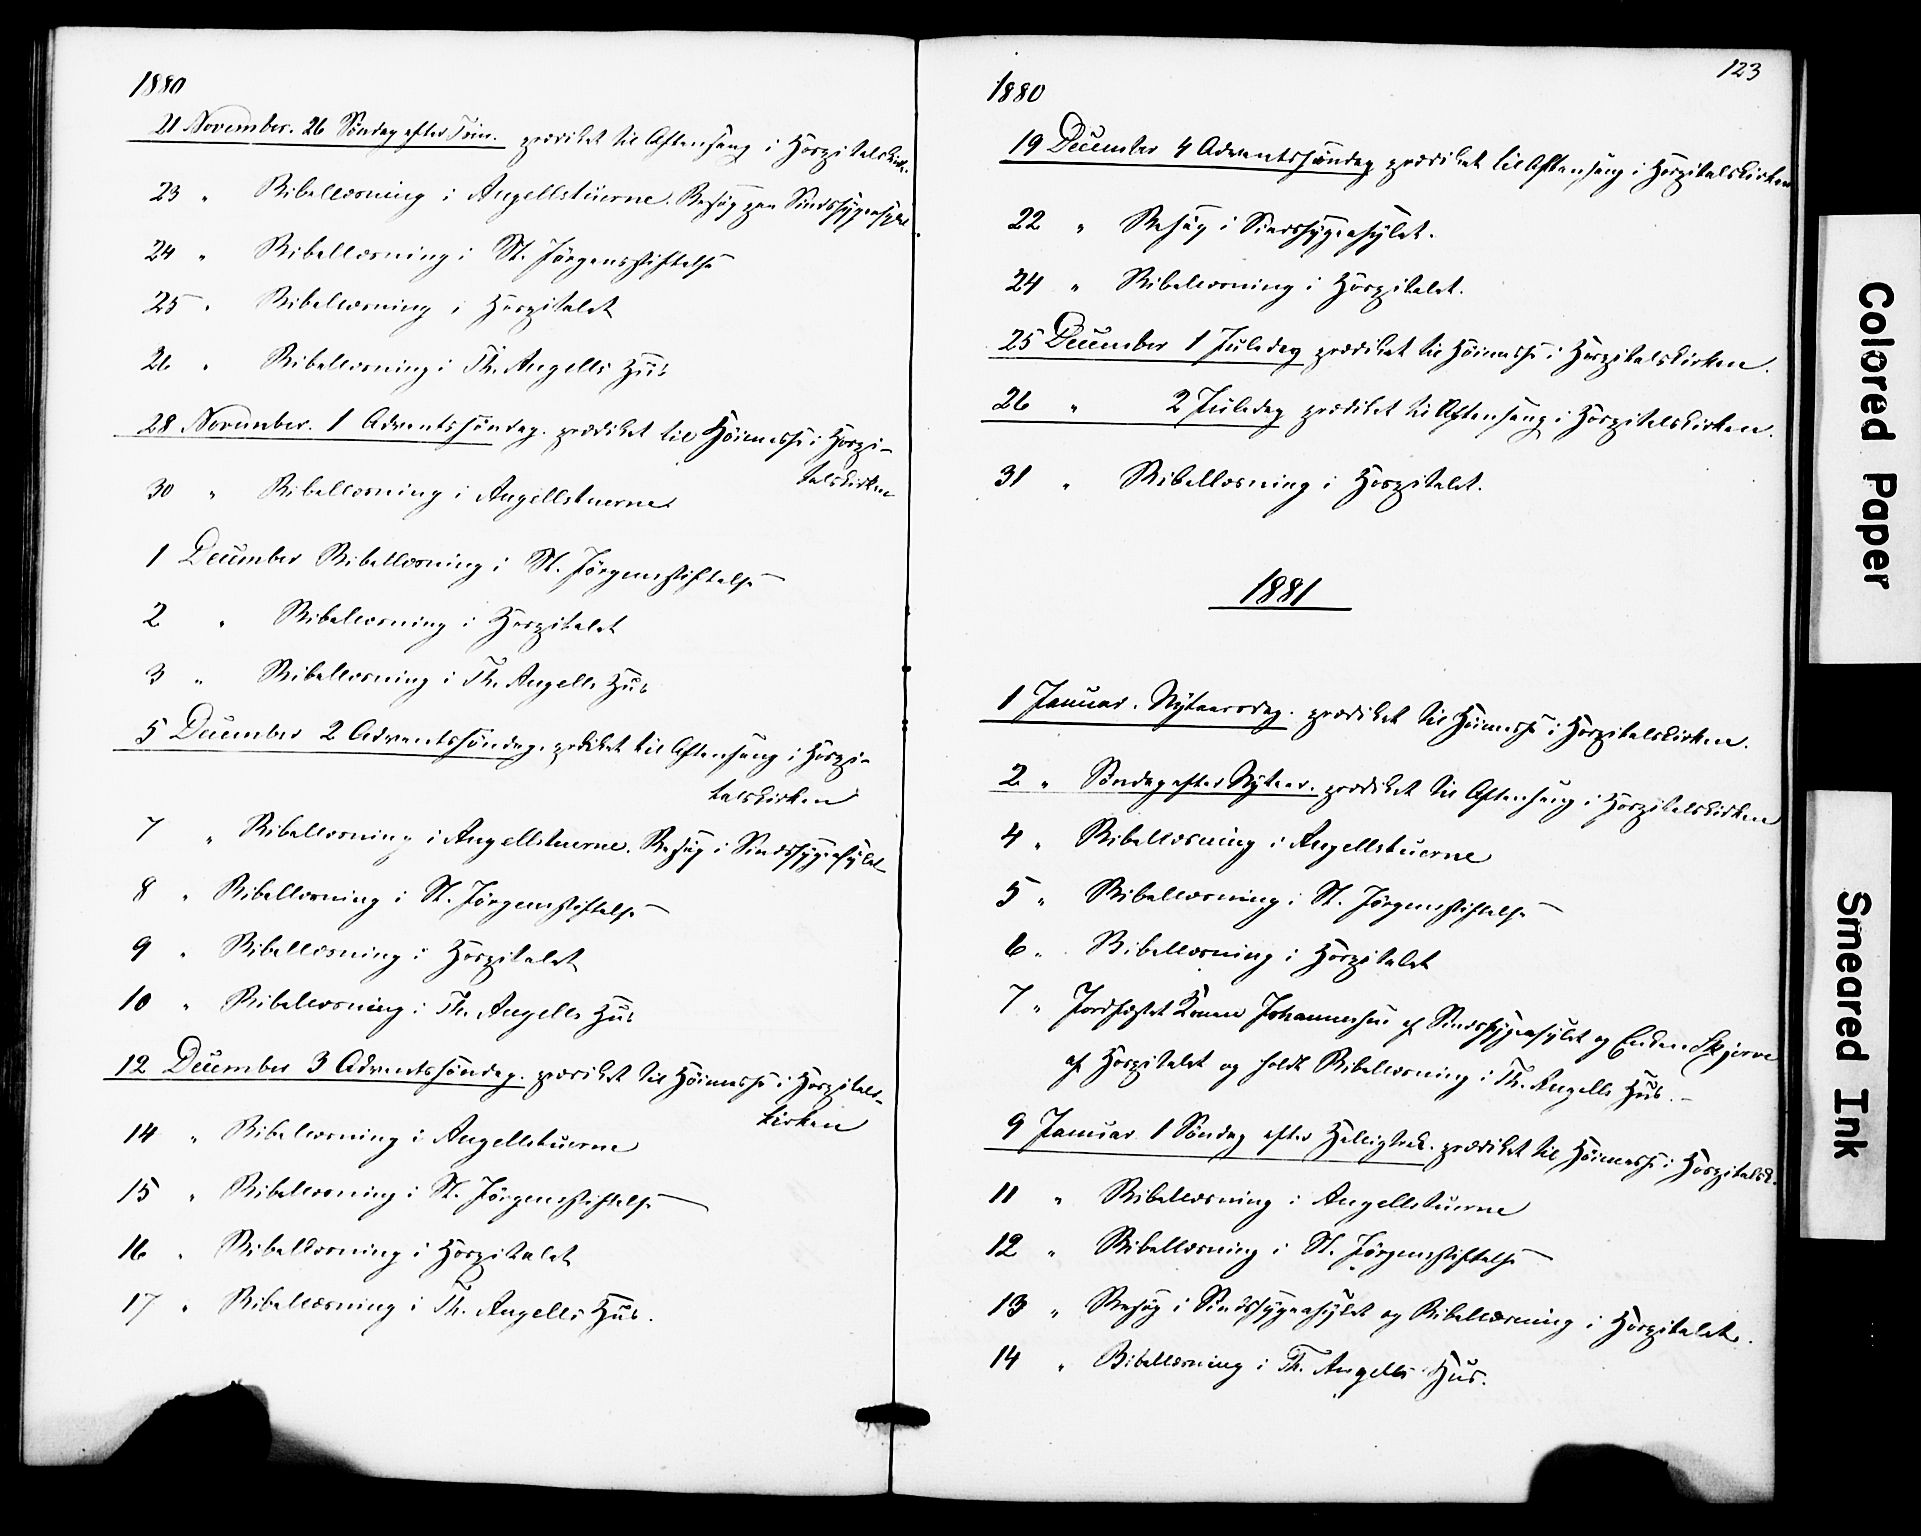 1880
21 November. 26 Søndag efter Trin. prædiket til Aftensang i Hospitalskirk.
23 " Bibellæsning i Angellstuerne. Besøg paa Sindssygeasylet.
24 " Bibellæsning i St. Jørgensstiftelse
25 " Bibellæsning i Hospitalet
26 " Bibellæsning i Th. Angells Hus
28 November. 1 Adventssøndag. prædiket til Høimesse i Hospi-
talskirken
30 " Bibellæsning i Angellstuerne
1 December Bibellæsning i St. Jørgensstiftelse
2 " Bibellæsning i Hospitalet
3 " Bibellæsning i Th. Angells Hus
5 December 2 Adventssøndag. prdiket til Aftensang i Hospi-
talskirken
7 " Bibellæsning i Angellstuerne. Besøg i Sindssygeasylet
8 " Bibellæsning i St. Jørgensstiftelse
9 " Bibellæsning i Hospitalet
10 " Bibellæsning i Th. Angells Hus
12 December 3 Adventssøndag. prædiket til Høimesse i Hospitals-
kirken
14 " Bibellæsning i Angellstuerne
15 " Bibellæsning i St. Jørgensstiftelse
16 " Bibellæsning i Hospitalet
17 " Bibellæsning i Th. Angells Hus.
123
1880
19 December 4 Adventssøndag prædiket til Aftensang i Hospitalskirken
22 " Besøg i Sindssygeasylet.
24 " Bibellæsning i Hospitalet.
25 December 1 Juledag prædiket til Høimesse i Hospitalskirken.
26 " 2 Juledag prædiket til Aftensang i Hospitalskirken.
31 " Bibellæsning i Hospitalet.
1881
1 Januar. Nytaarsdag. prædiket til Høimesse i Hospitalskirken.
2 " Søndag efter Nytaar. prædiket til Aftensang i Hospitalskirken
4 " Bibellæsning i Angellstuerne
5 " Bibellæsning i St. Jørgensstiftelse
6 " Bibellæsning i Hospitalet
7 " Jordfæstet Konen Johannessen af Sindssygeasylet og Enken Skjerve
af Hospitalet og holdt Bibellæsning i Th. Angells Hus.
9 Januar 1 Søndag efter Helligtrek. prædiket til Høimesse i Hospitalsk.
11 " Bibellæsning i Angellstuerne
12 " Bibellæsning i St. Jørgensstiftelse
13 " Besøg i Sindssygeasylet og Bibellæsning i Hospitalet.
14 " Bibellæsning i Th. Angells Hus.
Colored Paper
Smeared Ink